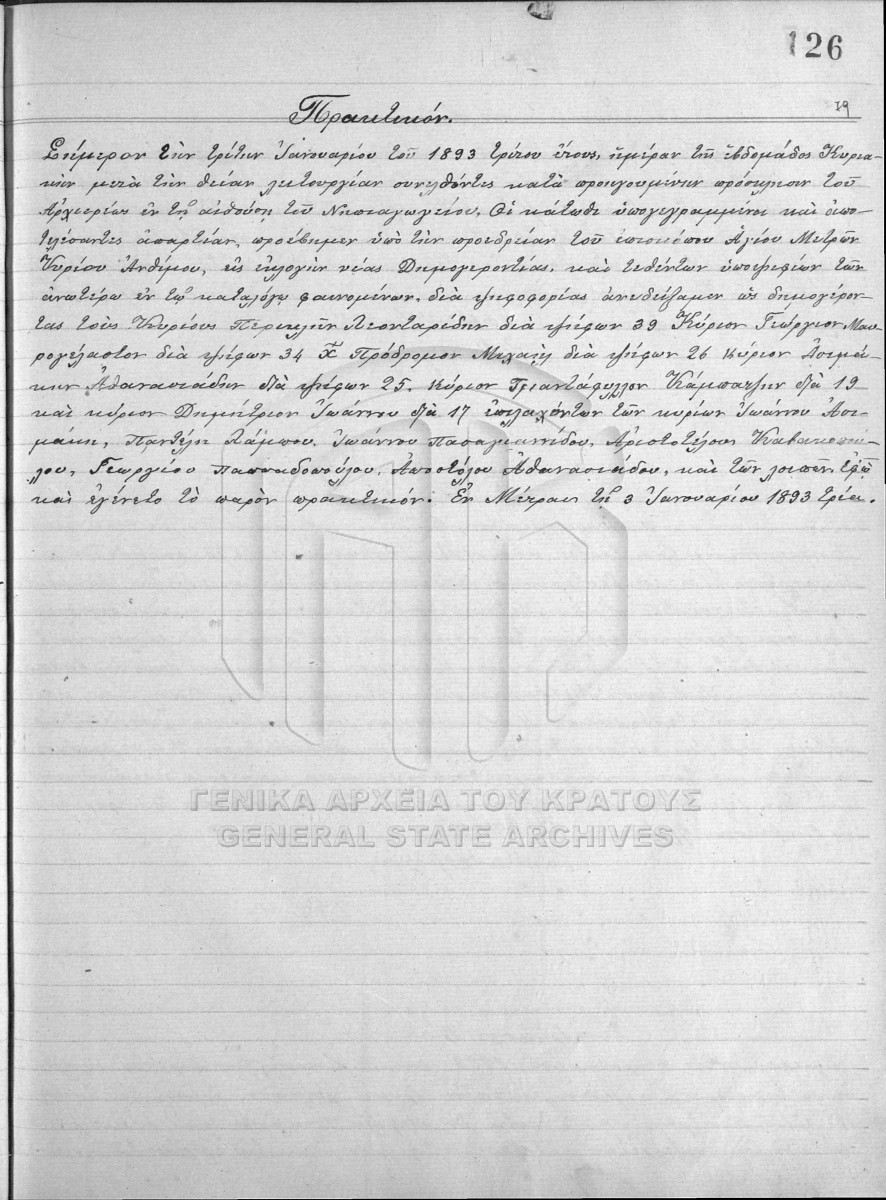 126
19
Πρακτικόν.
Σήμερον τὴν τρίτην Ἰανουαρίου τοῦ 1893 τρίτου ἔτους, ἡμέραν τῆς ἑβδομάδος Κυρια-
κὴν μετὰ τὴν θείαν λειτουργίαν συνελθόντες κατὰ προηγουμένην πρόσκλησιν τοῦ
Ἀρχιερέως ἐν τῇ αἰθούσῃ τοῦ Νηπιαγωγείου, Οἱ κάτωθι ὑπογεγραμμένοι καὶ ἀπο-
τελέσαντες ἀπαρτίαν, προέβημεν ὑπὸ τὴν προεδρείαν τοῦ ἐπισκόπου Ἁγίου Μετρῶν
Κυρίου Ἀνθίμου, εἰς ἐκλογὴν νέας Δημογεροντίας, καὶ τεθέντων ὑποψηφίων τῶν
ἀνωτέρω ἐν τῷ καταλόγῳ φαινομένων, διὰ ψηφοφορίας ἀνεδείξαμεν ὡς δημογέρον-
τας τοὺς Κυρίους Περικλῆν Λεονταρίδην διὰ ψήφων 39 Κύριον Γεώργιον Μαυ-
ρογέλαστον διὰ ψήφων 34 Κ Πρόδρομον Μιχαὴλ διὰ ψήφων 26 κύριον Ἀσημά-
κην Ἀθανασιάδην διὰ ψήφων 25. κύριον Τριαντάφυλλον Κάμπατζην διὰ 19
καὶ κύριον Δημήτριον Ἰωάννου διὰ 17 ἐπιλαχόντων τῶν κυρίων Ἰωάννου Ἀση-
μάκη, Παντελῆ Λάμπου, Ἰωάννου Παπαγιαννίδου, Ἀριστοτέλους Καβακοπού-
λου, Γεωργίου Παπαδοπούλου, Ἀποστόλου Ἀθανασιάδου, καὶ τῶν λοιπῶν, Ἐφ' ᾧ
καὶ ἐγένετο τὸ παρὸν πρακτικόν. Ἐν Μέτραις τῇ 3 Ἰανουαρίου 1893 τρία.
ΓΕΝΙΚΑ ΑΡΧΕΙΑ ΤΟΥ ΚΡΑΤΟΥΣ
GENERAL STATE ARCHIVES